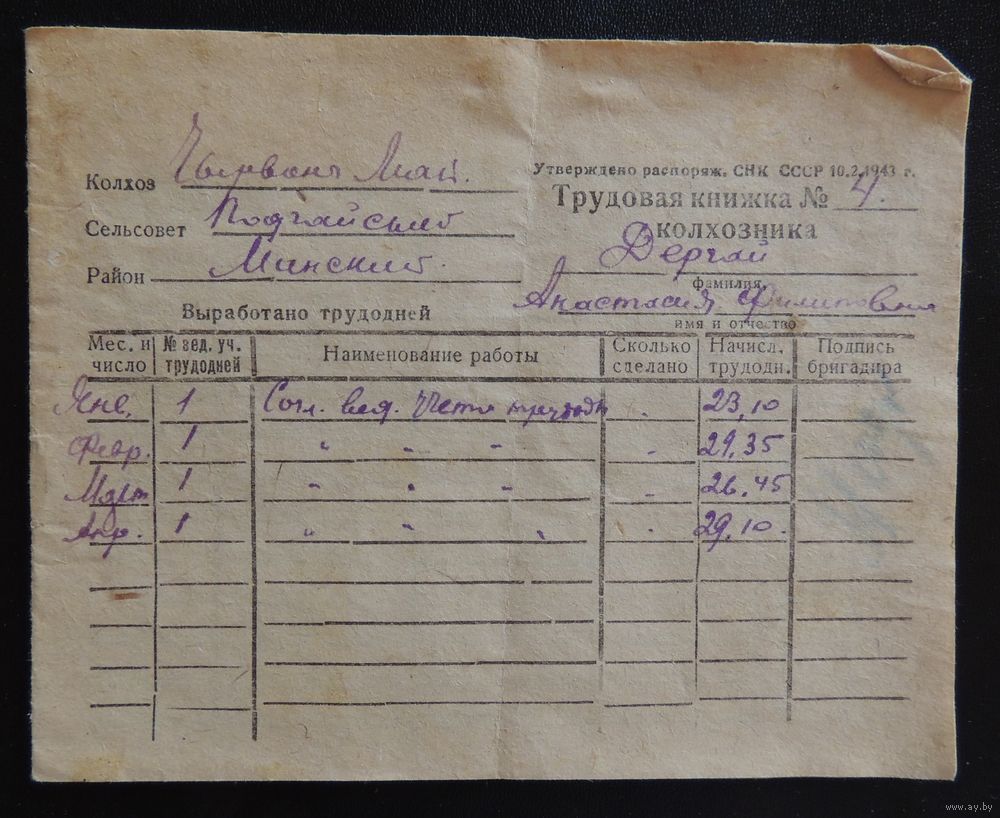 Колхоз Чырвоны Май.
Сельсовет Подгайский
Район Минский.
Утверждено распоряж. СНК СССР 10.2.1943 г.
Трудовая книжка № 4.
колхозника
Дергай
фамилия
Анастасия Филиповна
имя и отчество
Выработано трудодней
Мес. и число № вед. уч. трудодней Наименование работы Сколько сделано Начисл. трудодн. Подпись бригадира
Янв. 1 Согл. вед. учета трудодн - 23,10
Февр. 1 " " " - 29,35
Март 1 " " " - 26,45
Апр. 1 " " " - 29,10.
www.ay.by